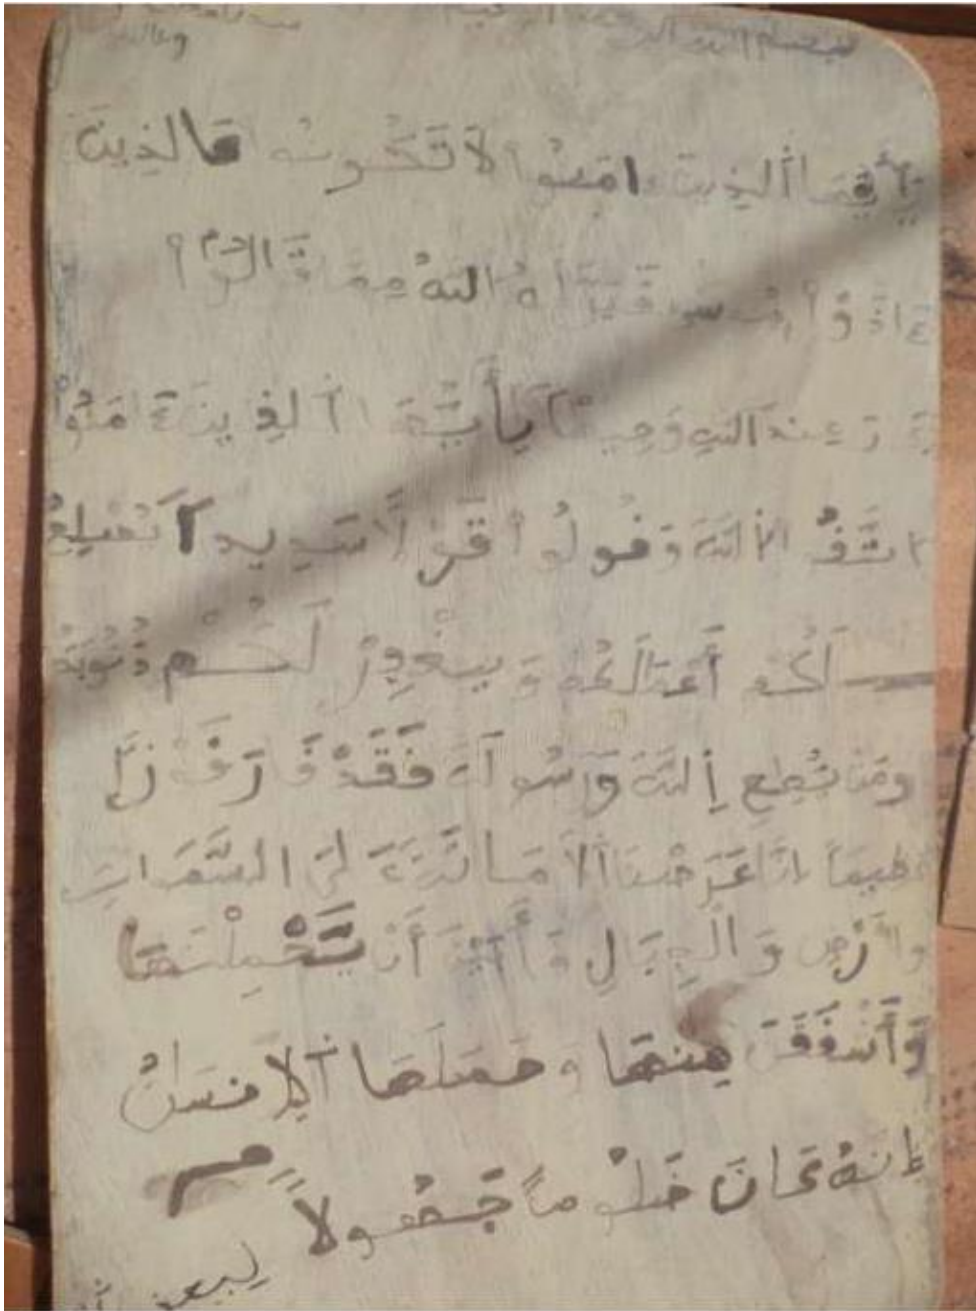 بسم الله الرحمن
يأيها ألذين ءامنوا لا تكونوا كالذين
ءاذوا موسى فبرأه الله مما قالوا
عند الله وجيها يأيها ألذين ءامنوا
اتقوا الله وقولوا قولا سديدا يصلح
لكم أعمالكم ويغفر لكم ذنوبكم
ومن يطع الله ورسوله فقد فاز فوزا
عظيما انا عرضنا ألامانة على السموات
والارض والجبال فأبين أن يحملنها
وأشفقن منها وحملها ألانسن
انه كان ظلوما جهولا
ليعذب